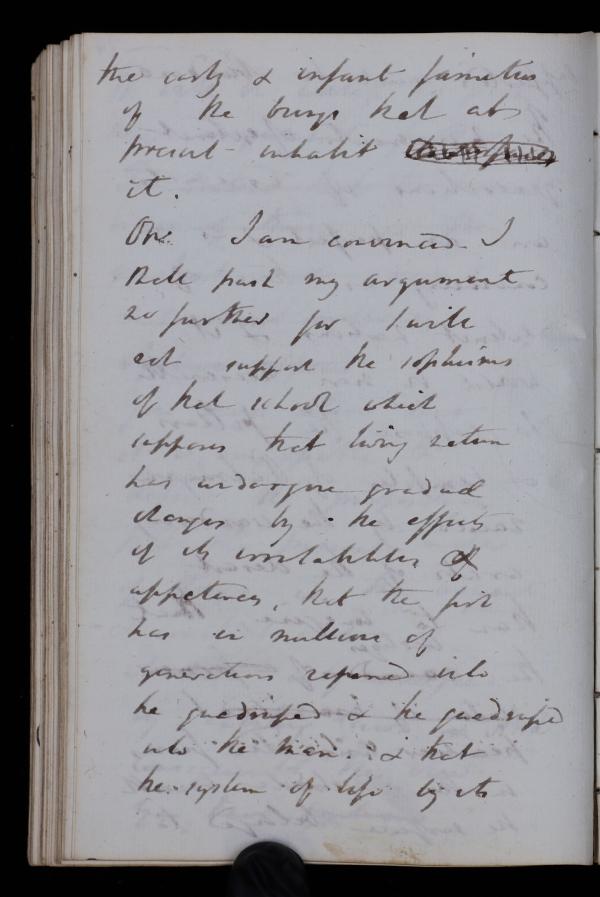 the early & infant families
of the beings that at
present inhabit
it.
Onu. I am convinced I
shall push my argument
no further for I will
not support the sophisms
of that school which
supposes that living nature
has undergone gradual
changes by the effects
of its irritabilities &
appetencies, that the fish
has in millions of
generations ripened into
the quadruped & the quadruped
into the man. & that
the system of life by its